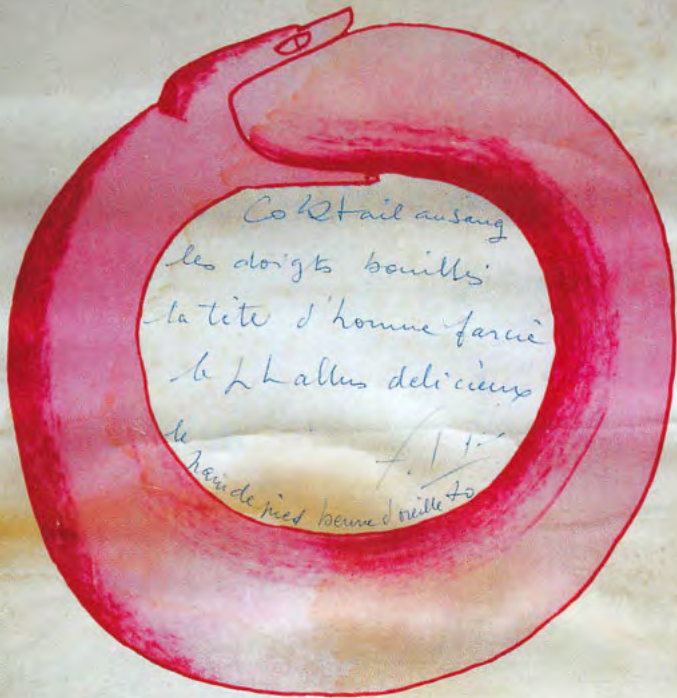 Cocktail au sang
les doigts bouillis
la tête d'homme farcie
le phallus delicieux
le
pain de pied beurre d'oreille